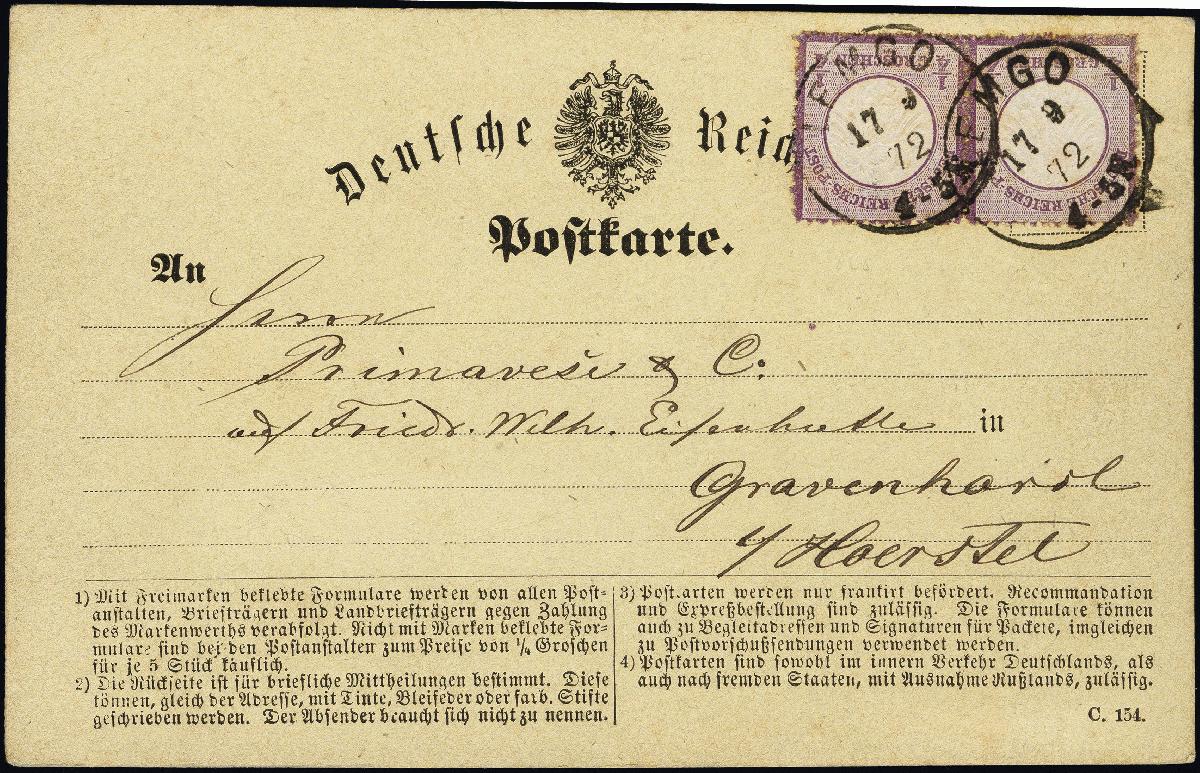 Deutsche Reich
Postkarte.
LEMGO
17 9
72
4-5N
LEMGO
17 9
72
4-5N
1/4 GROSCHEN 1/4
An
Herrn
Primavesi & C:
auf Friedr. Wilh. Eisenhuette in
Gravenhorst
b/ Hoerstel
1) Mit Freimarken beklebte Formulare werden von allen Post-
anstalten, Briefträgern und Landbriefträgern gegen Zahlung
des Markenwerths verabfolgt. Nicht mit Marken beklebte For-
mulare sind bei den Postanstalten zum Preise von 1/4 Groschen
für je 5 Stück käuflich.
2) Die Rückseite ist für briefliche Mittheilungen bestimmt. Diese
können, gleich der Adresse, mit Tinte, Bleifeder oder farb. Stifte
geschrieben werden. Der Absender braucht sich nicht zu nennen.
3) Postkarten werden nur frankirt befördert. Recommandation
und Expreßbestellung sind zulässig. Die Formulare können
auch zu Begleitadressen und Signaturen für Packete, imgleichen
zu Postvorschußsendungen verwendet werden.
4) Postkarten sind sowohl im innern Verkehr Deutschlands, als
auch nach fremden Staaten, mit Ausnahme Rußlands, zulässig.
C. 154.